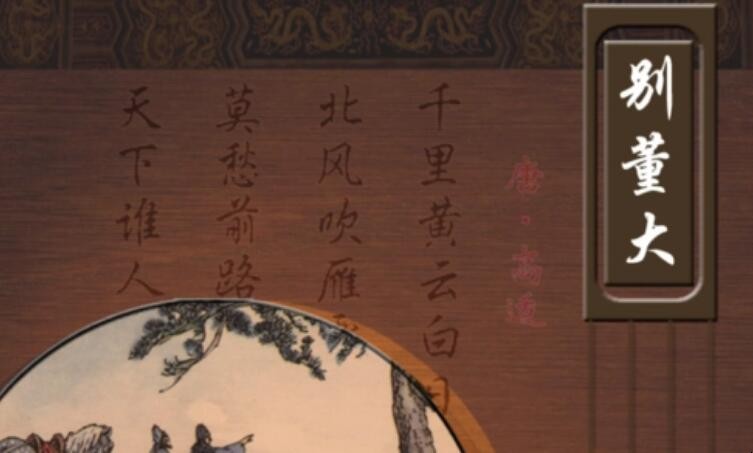 别董大
唐·高适
千里黄云白日
北风吹雁
莫愁前路
天下谁人